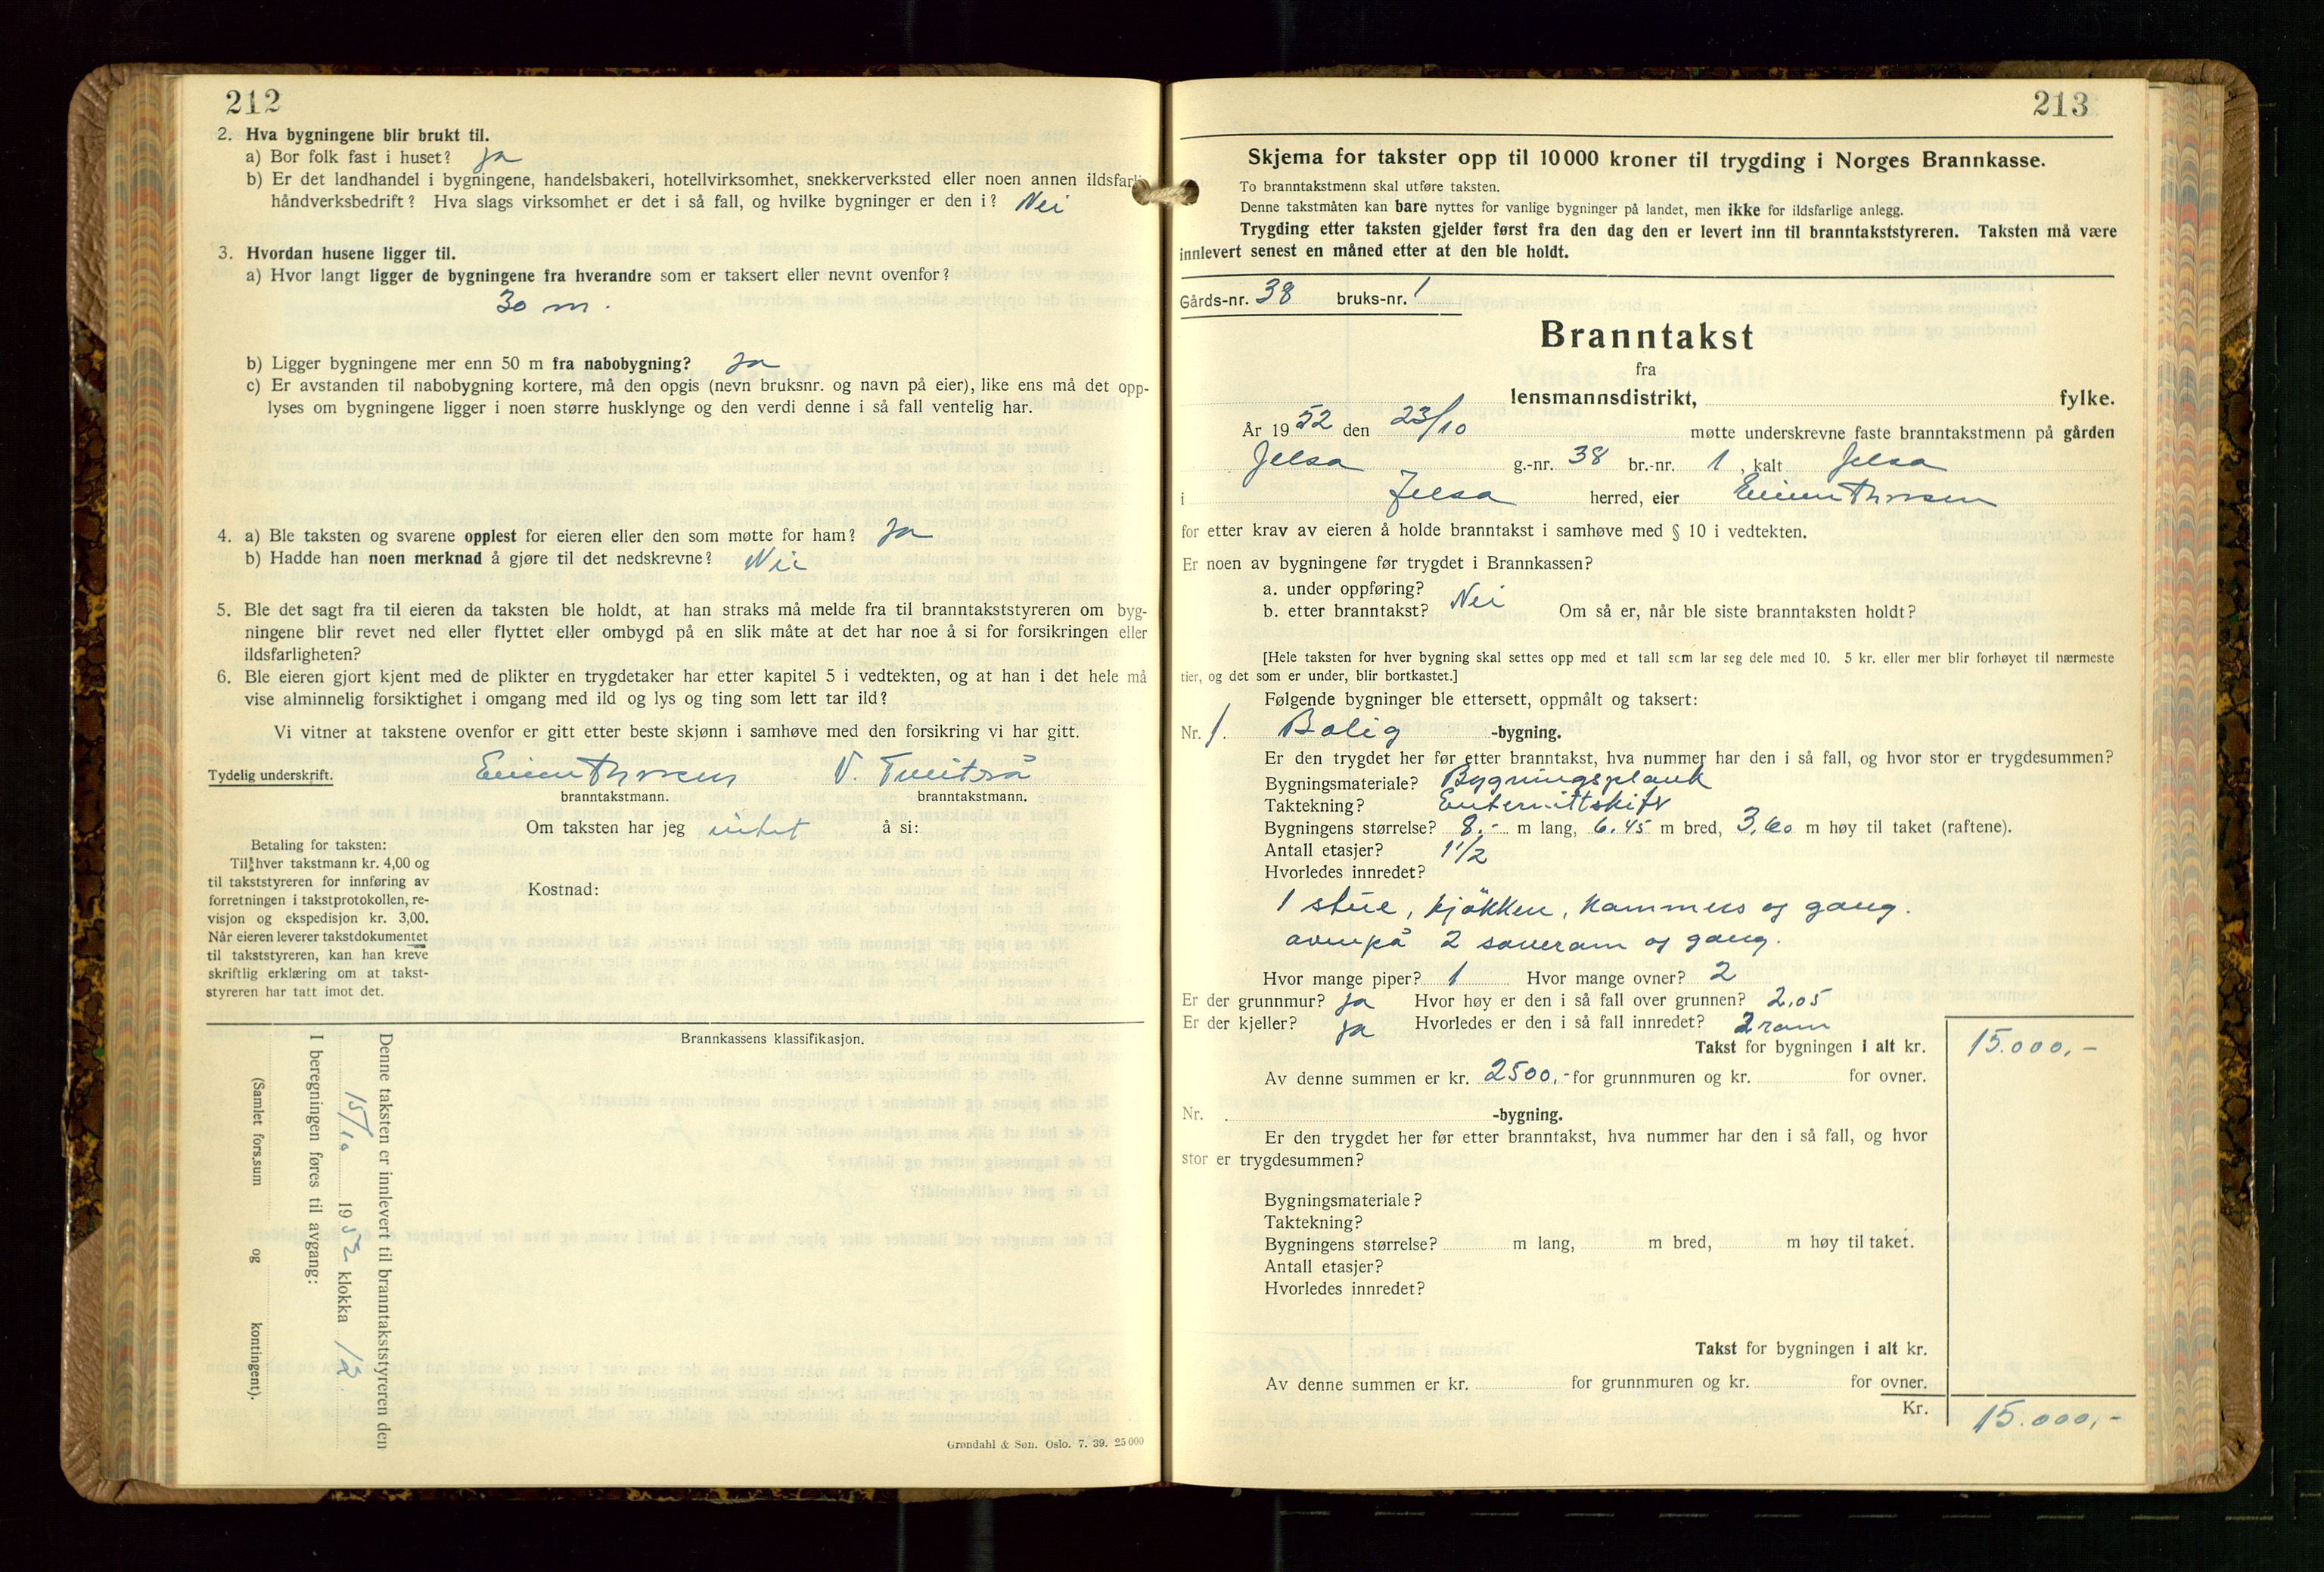 212
2. Hva bygningene blir brukt til.
a) Bor folk fast i huset? ja
b) Er det landhandel i bygningene, handelsbakeri, hotellvirksomhet, snekkerverksted eller noen annen ildsfarlig
håndverksbedrift? Hva slags virksomhet er det i så fall, og hvilke bygninger er den i? Nei
3. Hvordan husene ligger til.
a) Hvor langt ligger de bygningene fra hverandre som er taksert eller nevnt ovenfor?
30 m.
b) Ligger bygningene mer enn 50 m fra nabobygning? ja
c) Er avstanden til nabobygning kortere, må den opgis (nevn bruksnr. og navn på eier), like ens må det opp-
lyses om bygningene ligger i noen større husklynge og den verdi denne i så fall ventelig har.
4. a) Ble taksten og svarene opplest for eieren eller den som møtte for ham? ja
b) Hadde han noen merknad å gjøre til det nedskrevne? Nei
5. Ble det sagt fra til eieren da taksten ble holdt, at han straks må melde fra til branntakststyreren om byg-
ningene blir revet ned eller flyttet eller ombygd på en slik måte at det har noe å si for forsikringen eller
ildsfarligheten?
6. Ble eieren gjort kjent med de plikter en trygdetaker har etter kapitel 5 i vedtekten, og at han i det hele må
vise alminnelig forsiktighet i omgang med ild og lys og ting som lett tar ild?
Vi vitner at takstene ovenfor er gitt etter beste skjønn i samhøve med den forsikring vi har gitt.
Tydelig underskrift. Einar Thorsen V. Tveitså
branntakstmann. branntakstmann.
Om taksten har jeg intet å si:
Betaling for taksten:
Til hver takstmann kr. 4,00 og
til takststyreren for innføring av
forretningen i takstprotokollen, re-
visjon og ekspedisjon kr. 3,00.
Når eieren leverer takstdokumentet
til takststyreren, kan han kreve
skriftlig erklæring om at takst-
styreren har tatt imot det.
Kostnad:
Brannkassens klassifikasjon.
Denne taksten er innlevert til branntakststyreren den
15/10 1952 klokka 12
I beregningen føres til avgang:
(Samlet fors.sum og kontingent).
Grøndahl & Søn. Oslo. 7. 39. 25 000
213
Skjema for takster opp til 10 000 kroner til trygding i Norges Brannkasse.
To branntakstmenn skal utføre taksten.
Denne takstmåten kan bare nyttes for vanlige bygninger på landet, men ikke for ildsfarlige anlegg.
Trygding etter taksten gjelder først fra den dag den er levert inn til branntakststyreren. Taksten må være
innlevert senest en måned etter at den ble holdt.
Gårds-nr. 38 bruks-nr. 1
Branntakst
fra
lensmannsdistrikt, fylke.
År 1952 den 23/10 møtte underskrevne faste branntakstmenn på gården
Jelsa g.-nr. 38 br.-nr. 1, kalt Jelsa
i Jelsa herred, eier Einar Thorsen
for etter krav av eieren å holde branntakst i samhøve med § 10 i vedtekten.
Er noen av bygningene før trygdet i Brannkassen?
a. under oppføring?
b. etter branntakst? Nei Om så er, når ble siste branntaksten holdt?
[Hele taksten for hver bygning skal settes opp med et tall som lar seg dele med 10. 5 kr. eller mer blir forhøyet til nærmeste
tier, og det som er under, blir bortkastet.]
Følgende bygninger ble ettersett, oppmålt og taksert:
Nr. 1. Bolig -bygning.
Er den trygdet her før etter branntakst, hva nummer har den i så fall, og hvor stor er trygdesummen?
Bygningsmateriale? Bygningsplank
Taktekning? Enternittskifr
Bygningens størrelse? 8.- m lang, 6.45 m bred, 3,60 m høy til taket (raftene).
Antall etasjer? 1 1/2
Hvorledes innredet?
1 stue, kjøkken, kammers og gang.
ovenpå 2 soverom og gang.
Hvor mange piper? 1 Hvor mange ovner? 2
Er der grunnmur? ja Hvor høy er den i så fall over grunnen? 2.05
Er der kjeller? ja Hvorledes er den i så fall innredet? 2 rom
Takst for bygningen i alt kr. 15.000,-
Av denne summen er kr. 2500,- for grunnmuren og kr. for ovner.
Nr. . -bygning.
Er den trygdet her før etter branntakst, hva nummer har den i så fall, og hvor
stor er trygdesummen?
Bygningsmateriale?
Taktekning?
Bygningens størrelse? m lang, m bred, m høy til taket.
Antall etasjer?
Hvorledes innredet?
Takst for bygningen i alt kr.
Av denne summen er kr. for grunnmuren og kr. for ovner.
Kr. 15.000,-